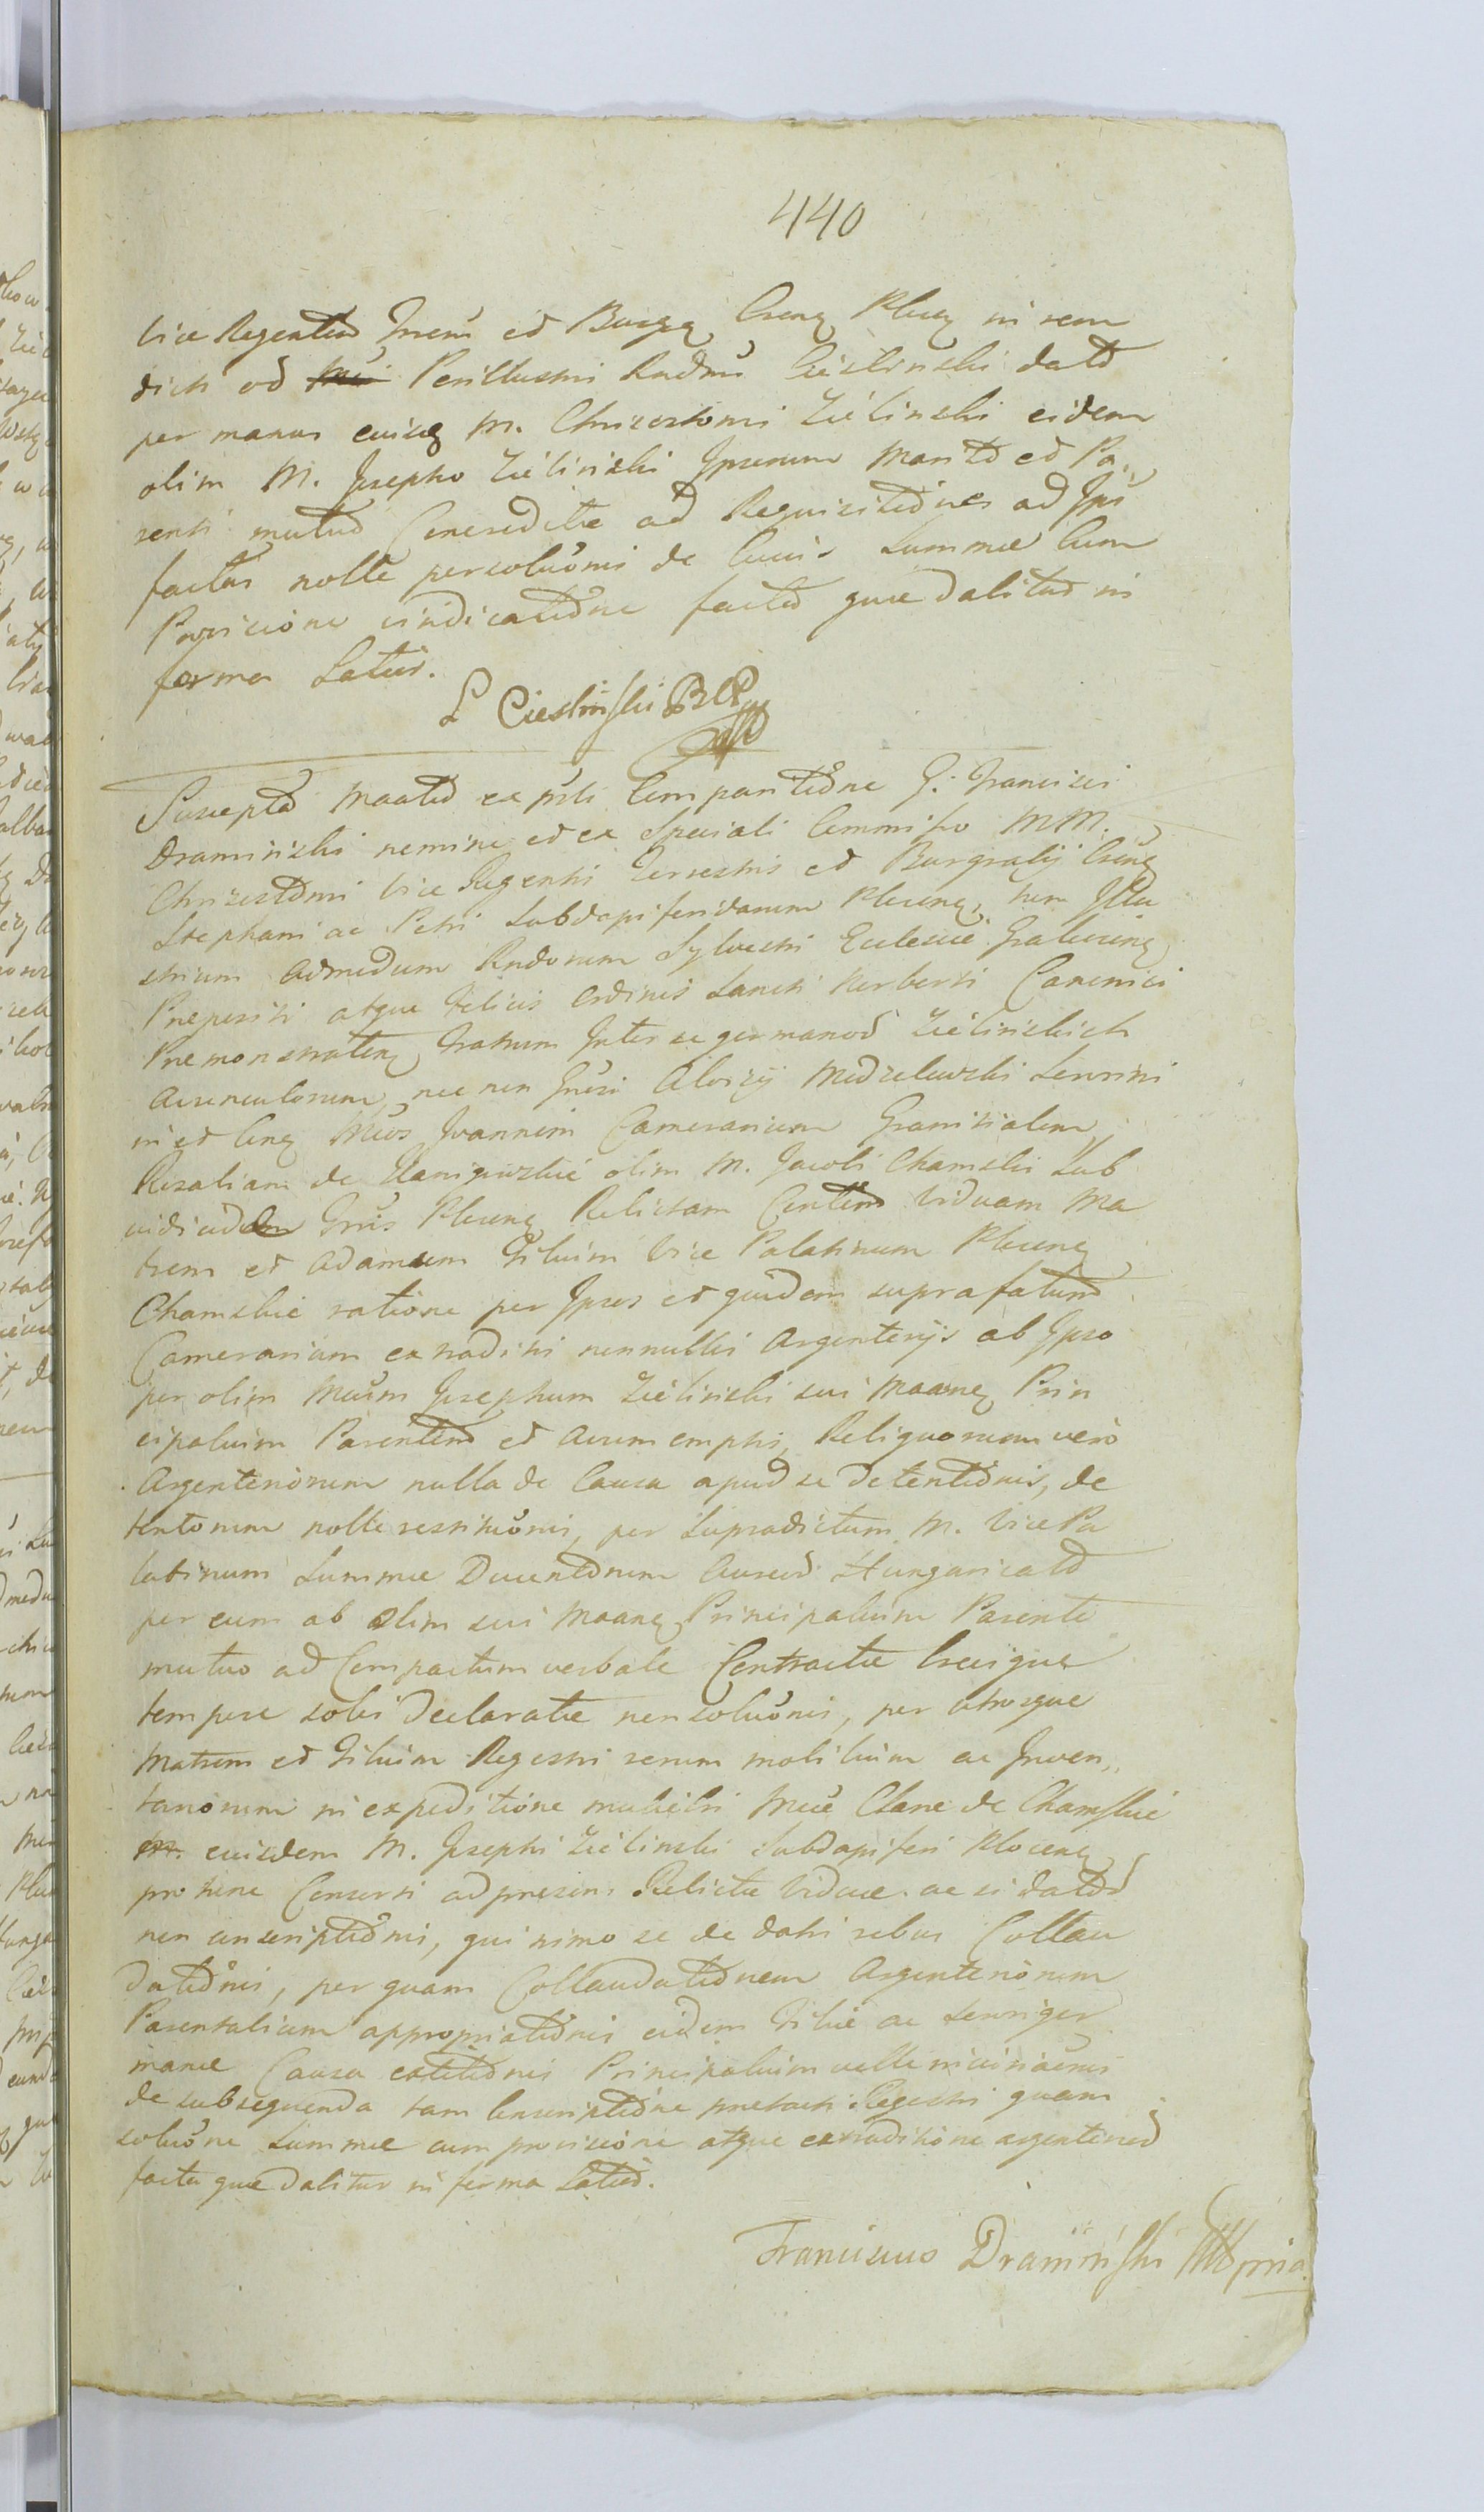 440
Vice Regentem Trrem et Burgg Csrem Plocen in rem
dicti ad Perillustri Rndmi Cieslinski dato
per manus cuisq M. Chrizostomi Zielinski eidem
olim M. Josepho Zielinski Ipsorum Marito et Pa
renti mutuo Concredite ad Requisitiones ad Ipsi
factas nolle persolvoni de Cuius Summae Cum
Provisione vindicatione facto quae dabitur in
forma Latius.
L Cieslinski BCP
Suscepto Maato ex prsti Comparitione G. Francisci
Draminski nomine et ex Speciali Commisso MM.
Chrizostomi Vice Regentis Terrestris et Burgrabij Csrens
Stephani ac Petri Subdapiferidarum Plocens, tum Illu
strium Admodum Rndorum Sylvestri Ecclesiae Gralevien
Prepositi atque Felicis Ordinis Sancti Norberti Canonici
Premonstraten Fratrum Inter se germanor Zielinskich
Avunculorum, nec non Grosi Aloizij Modzelewski Sororini
in et Cong Mcos Joannem Camerarium Granicialem
Rozaliam de olim M. Jacobi Chamski Sub
iudicidem Trris Plocens Relictam Contem Viduam Ma
trem et Adamum Filium Vice Palatinum Plocens
Chamskie ratione per Ipsos et quidem suprafatum
Camerarium extraditi nonnullis Argenterijs ab Ipso
per olim Mcum Josephum Zielinski sui Maanq Prin
cipalium Parentem et Avum emptis, Reliquorum vero
Argenteriorum nulla de Causa apud se Detentionis, de
tentorum nolle restituonis, per Supradictum M. Vice Pa
latinum Summae Ducentorum Aureor Hungaricalr
per eum ab olim sui Maanq Principalium Parente
mutuo ad Compactum verbale Contractae
tempore sobi Declaratae non soluonis, per utrosque
Matrem et Filium Regestri rerum mobilium ac Inven,,
tariorum in expeditione muliebri Mcae Clarae de Chamskie
eiusdem M. Josephi Zielinski Subdapiferi Plocens
pro tunc Consorti ad presens Relictae Viduae ac ei dator
non conscriptionis, qui nimo se de dati rebus Collau
dationis, per quam Collaudationem Argenteriorum
Parentalium appropriationis eidem Filiae ac Sorori ger
manae Causa extitionis Principalium velle
de subsequenda tam Conscriptione pretacti Regestri quam
soluone Summae cum provisione atque extraditione argenterior
facta quae dabitur in forma Latior.
Franciscus Draminski Mpria.